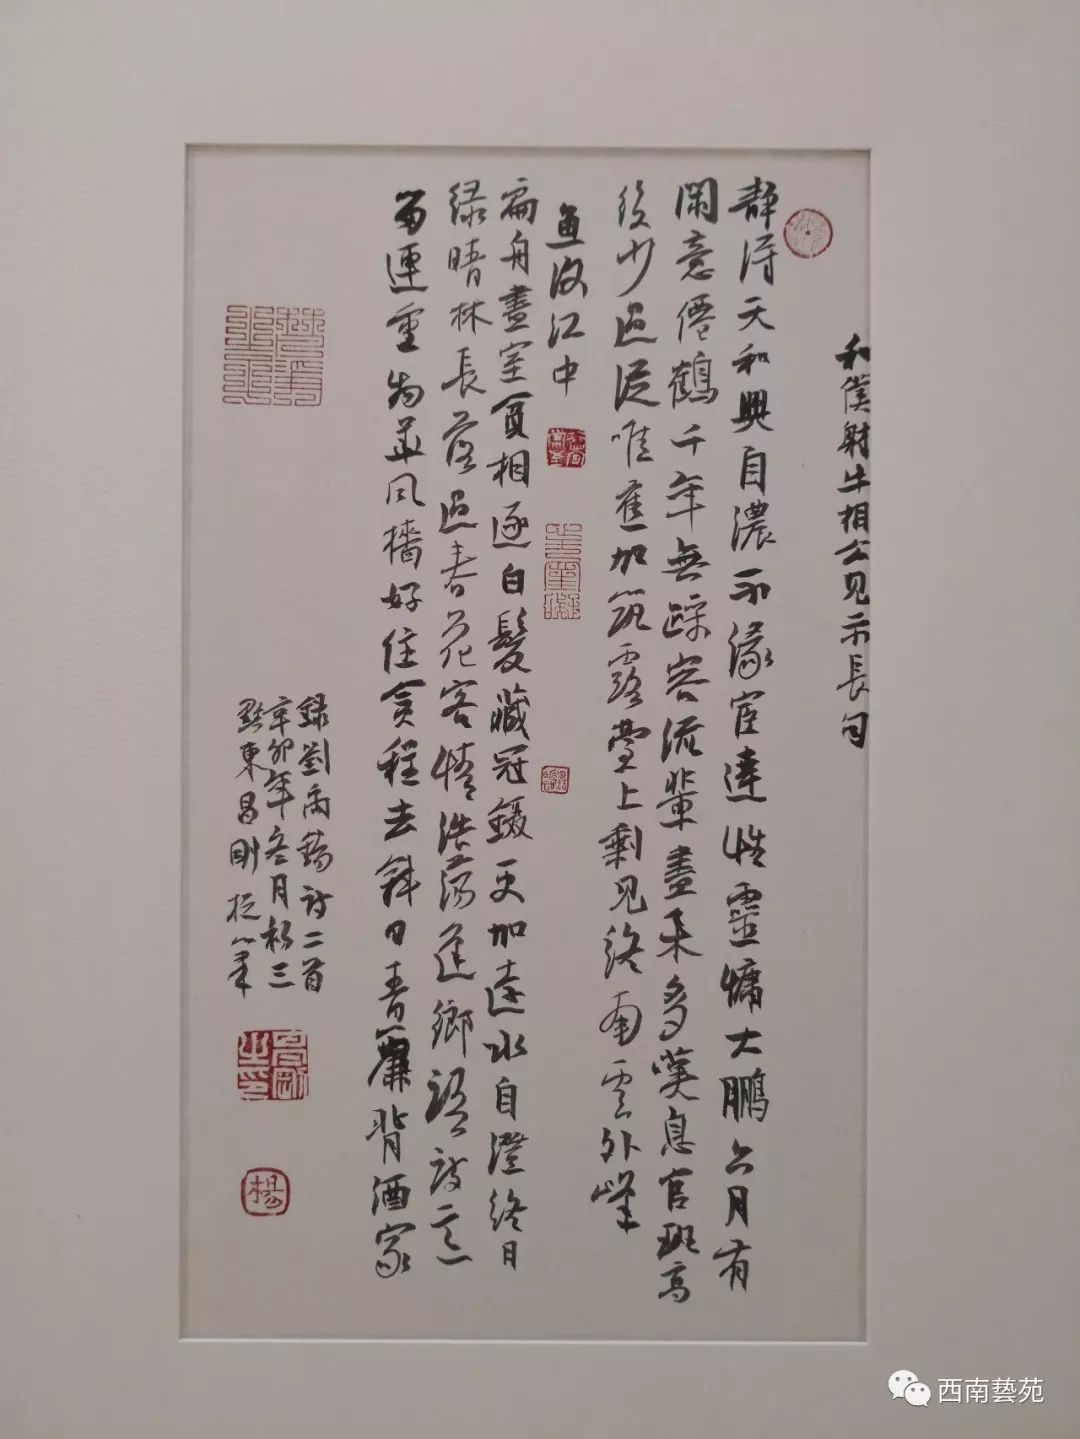 和僕射牛相公見示長句
静得天和興自濃不緣宦達性靈慵大鵬六月有
閑意僊鶴千年無躁容流輩盡来多嘆息官班高
後少過從唯應加筑露臺上剩見終南雲外峰
魚復江中
扁舟盡室貧相逐白髮藏冠鑷更加遠水自澄終日
緑晴林長落過春花客情浩蕩逢鄉語詩意
留連重物華風檣好住貪程去斜日青簾背酒家
錄劉禹錫詩二首
辛卯年冬月初三
黔東昌剛拙筆
昌剛之印
楊
西南藝苑